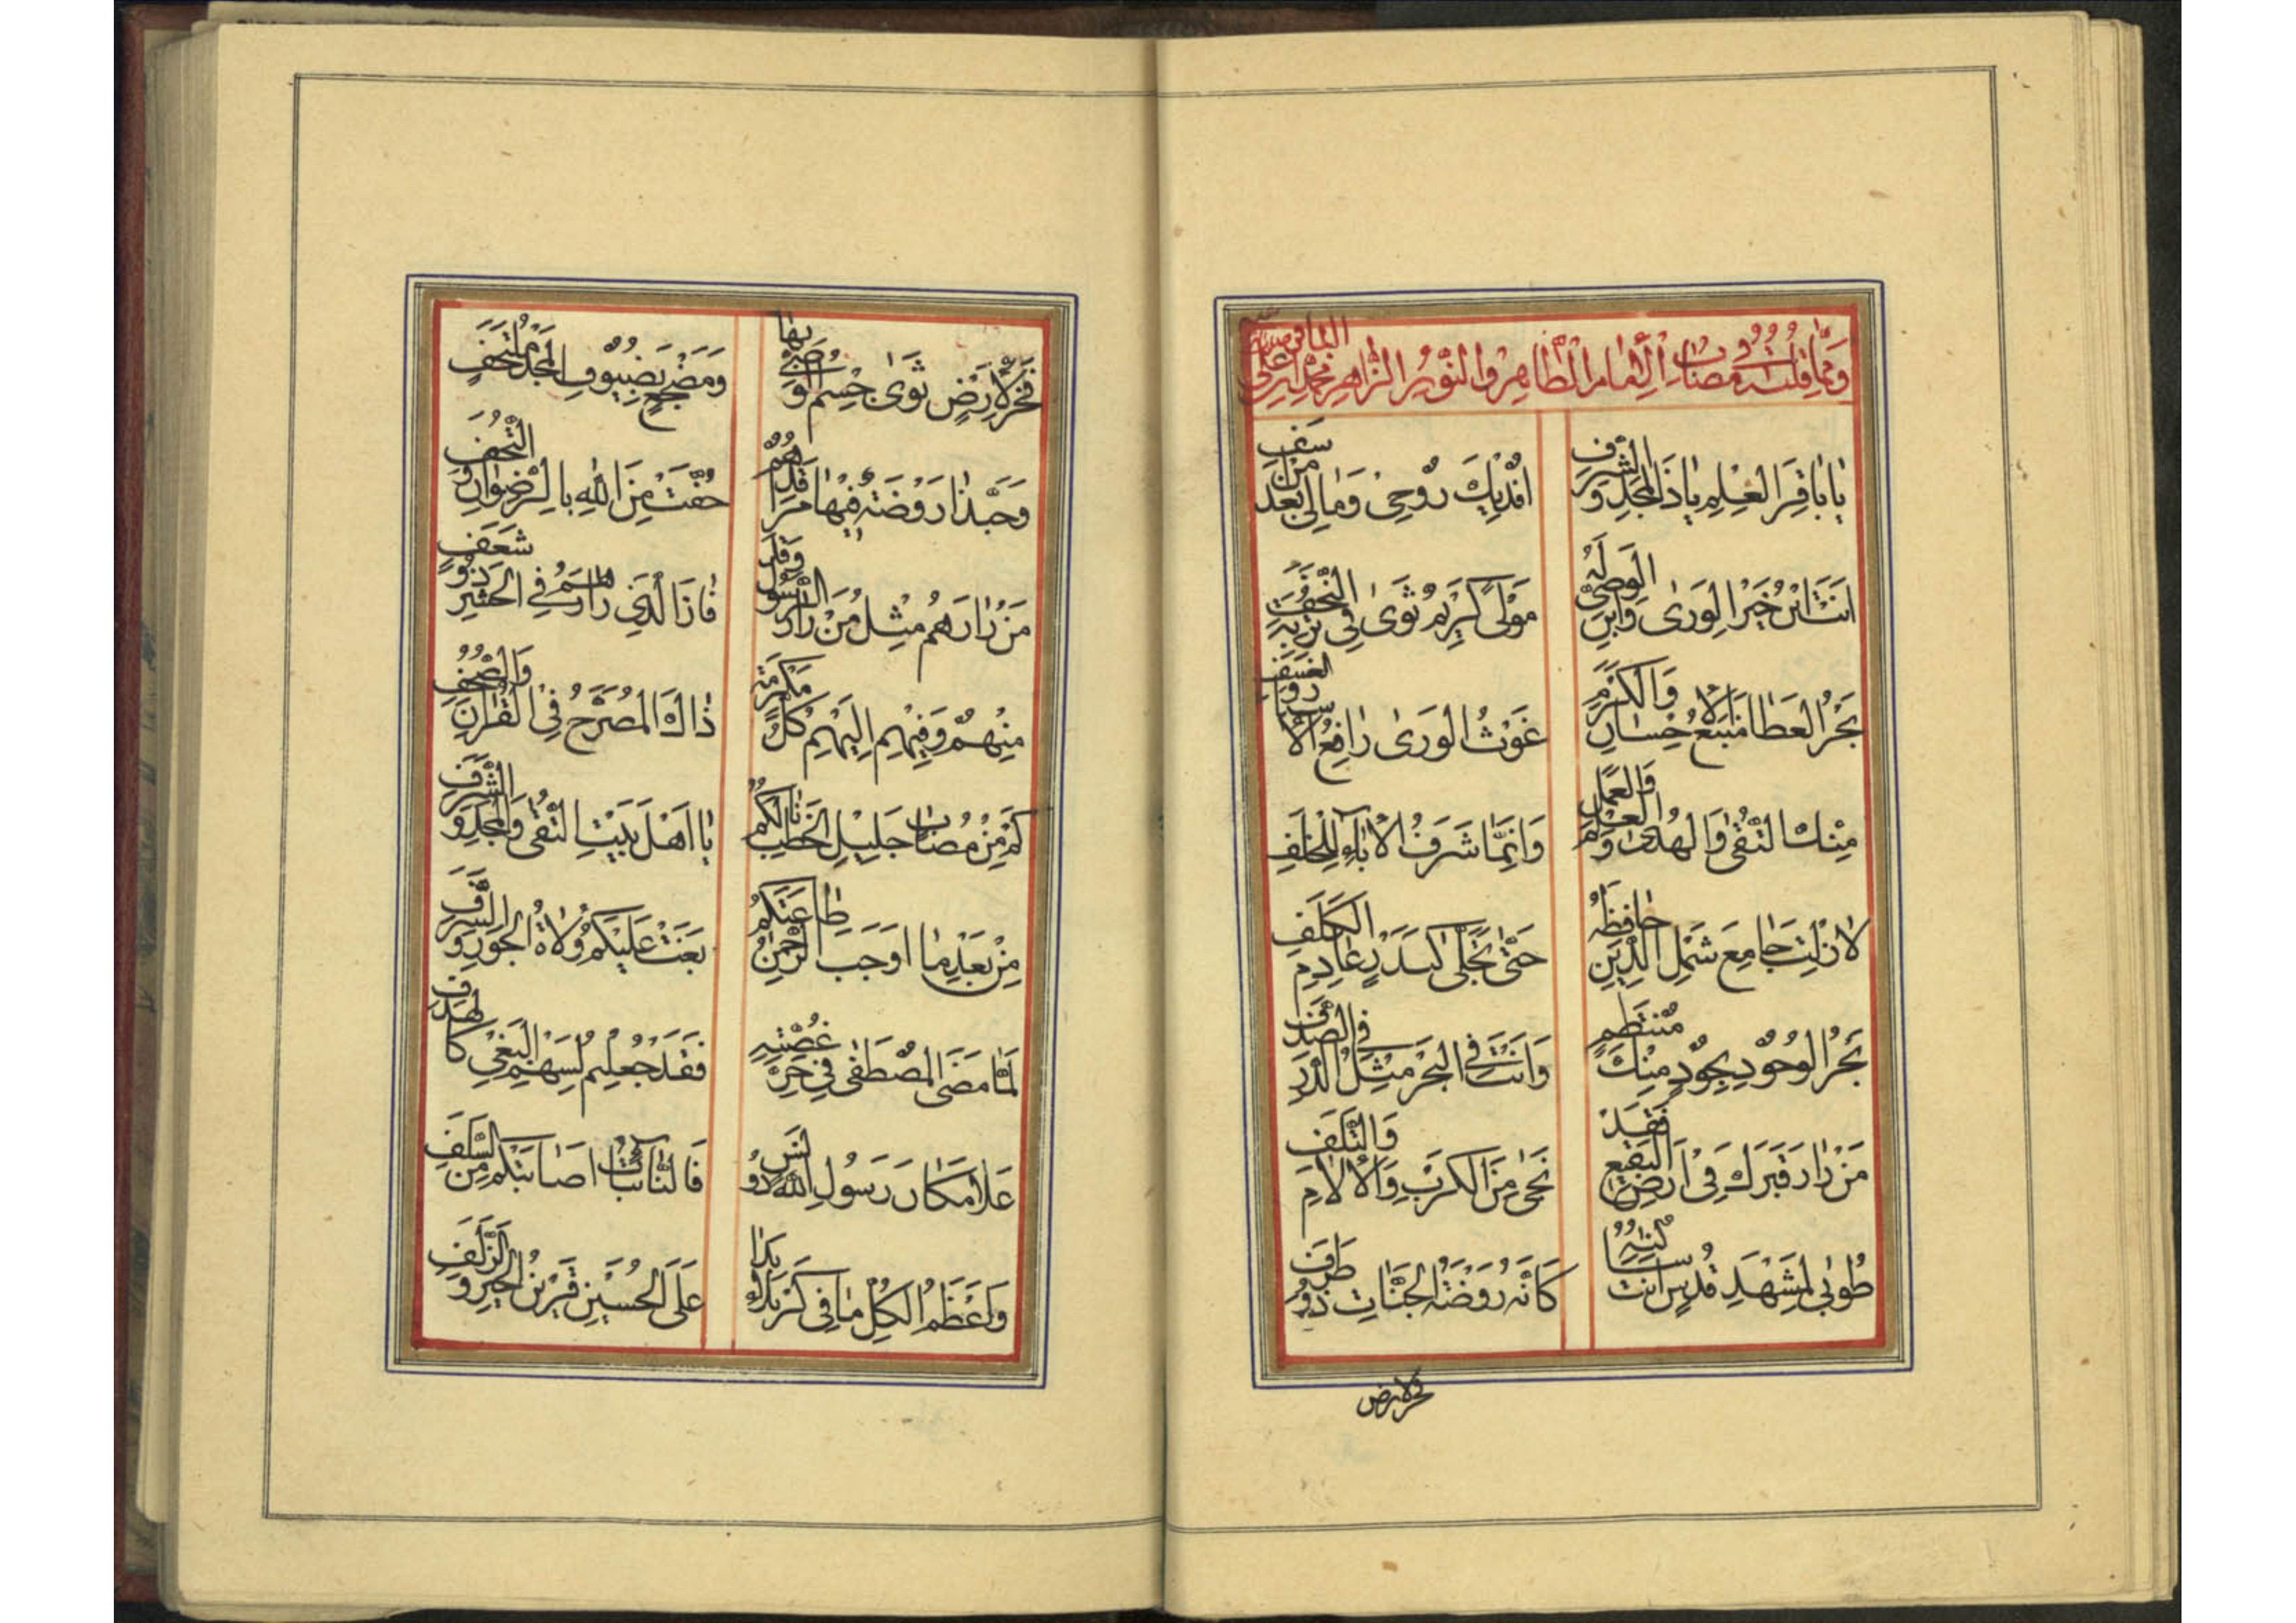 وَمِمَّا قُلْتُهُ فِي مُصَابِ الْإِمَامِ الطَّاهِرِ وَالنُّورِ الزَّاهِرِ مُحَمَّدِ بْنِ عَلِيٍّ الْبَاقِرِ
يَا بَاقِرَ الْعِلْمِ يَا ذَا الْمَجْدِ وَالشَّرَفِ اَفْدِيكَ رُوحِي وَمَا لِي بَعْدُ مِنْ سَعَفِ
اَنْتَ ابْنُ خَيْرِ الْوَرَى وَابْنُ الْوَصِيِّ لَهُ مَوْلًى كَرِيمٌ ثَوَى فِي تُرْبَةِ النَّجَفِ
بَحْرُ الْعَطَا مَنْبَعُ الْاِحْسَانِ وَالْكَرَمِ غَوْثُ الْوَرَى رَافِعُ
مِنْكَ التُّقَى وَالْهُدَى وَالْعِلْمُ وَالْعَمَلُ وَاِنَّمَا شَرَفُ الْاٰبَاءِ لِلْخَلَفِ
لَا زِلْتَ جَامِعَ شَمْلِ الدِّينِ حَافِظَهُ حَتَّى تَجَلَّى كَبَدْرٍ عَادِمِ الْكَلَفِ
بَحْرُ الْوُجُودِ بِجُودٍ مِنْكَ مُنْتَظِمٌ وَاَنْتَ فِي الْبَحْرِ مِثْلُ الدُّرِّ فِي الصَّدَفِ
مَنْ زَارَ قَبْرَكَ فِي اَرْضِ الْبَقِيعِ فَقَدْ نَجَى مِنَ الْكَرْبِ وَالْاٰلَامِ وَالتَّلَفِ
طُوبَى لِمَشْهَدِ قُدْسٍ اَنْتَ سَاكِنُهُ كَاَنَّهُ رَوْضَةُ الْجَنَّاتِ ذُو طَرَفِ
فخر لارض
فَخْرٌ لِاَرْضٍ ثَوَى جِسْمُ الْوَصِيِّ بِهَا وَمَضْجَعٍ بِضُيُوفِ الْمَجْدِ مُلْتَحِفِ
وَحَبَّذَا رَوْضَةٌ فِيهَا مَرَاقِدُهُمْ حُفَّتْ مِنَ اللّٰهِ بِالرِّضْوَانِ وَالتُّحَفِ
مَنْ زَارَهُمْ مِثْلُ مَنْ زَارَ الرَّسُولَ وَقَدْ فَازَ الَّذِي زَارَهُمْ فِي الْحَشْرِ
مِنْهُمْ وَفِيهِمْ اِلَيْهِمْ كُلُّ مَكْرُمَةٍ ذَاكَ الْمُصَرَّحُ فِي الْقُرْاٰنِ وَالصُّحُفِ
كَمْ مِنْ مُصَابٍ جَلِيلِ الْخَطْبِ نَالَكُمُ يَا اَهْلَ بَيْتِ التُّقَى وَالْمَجْدِ وَالشَّرَفِ
مِنْ بَعْدِ مَا اَوْجَبَ الرَّحْمٰنُ طَاعَتَكُمْ بَغَتْ عَلَيْكُمْ وُلَاةُ الْجَوْرِ وَالسَّرَفِ
لَمَّا مَضَى الْمُصْطَفَى فِي حَرِّ غُصَّتِهِ فَقَدْ جُعِلْتُمْ لِسَهْمِ الْبَغْيِ كَالْهَدَفِ
عَلَا مَكَانَ رَسُولِ اللّٰهِ فَالنَّائِبَاتُ اَصَابَتْكُمْ مِنَ السَّلَفِ
وَاَعْظَمُ الْكُلِّ مَا فِي كَرْبَلَاءَ بَدَا عَلَى الْحُسَيْنِ قَرِينِ الْخَيْرِ وَالزُّلَفِ